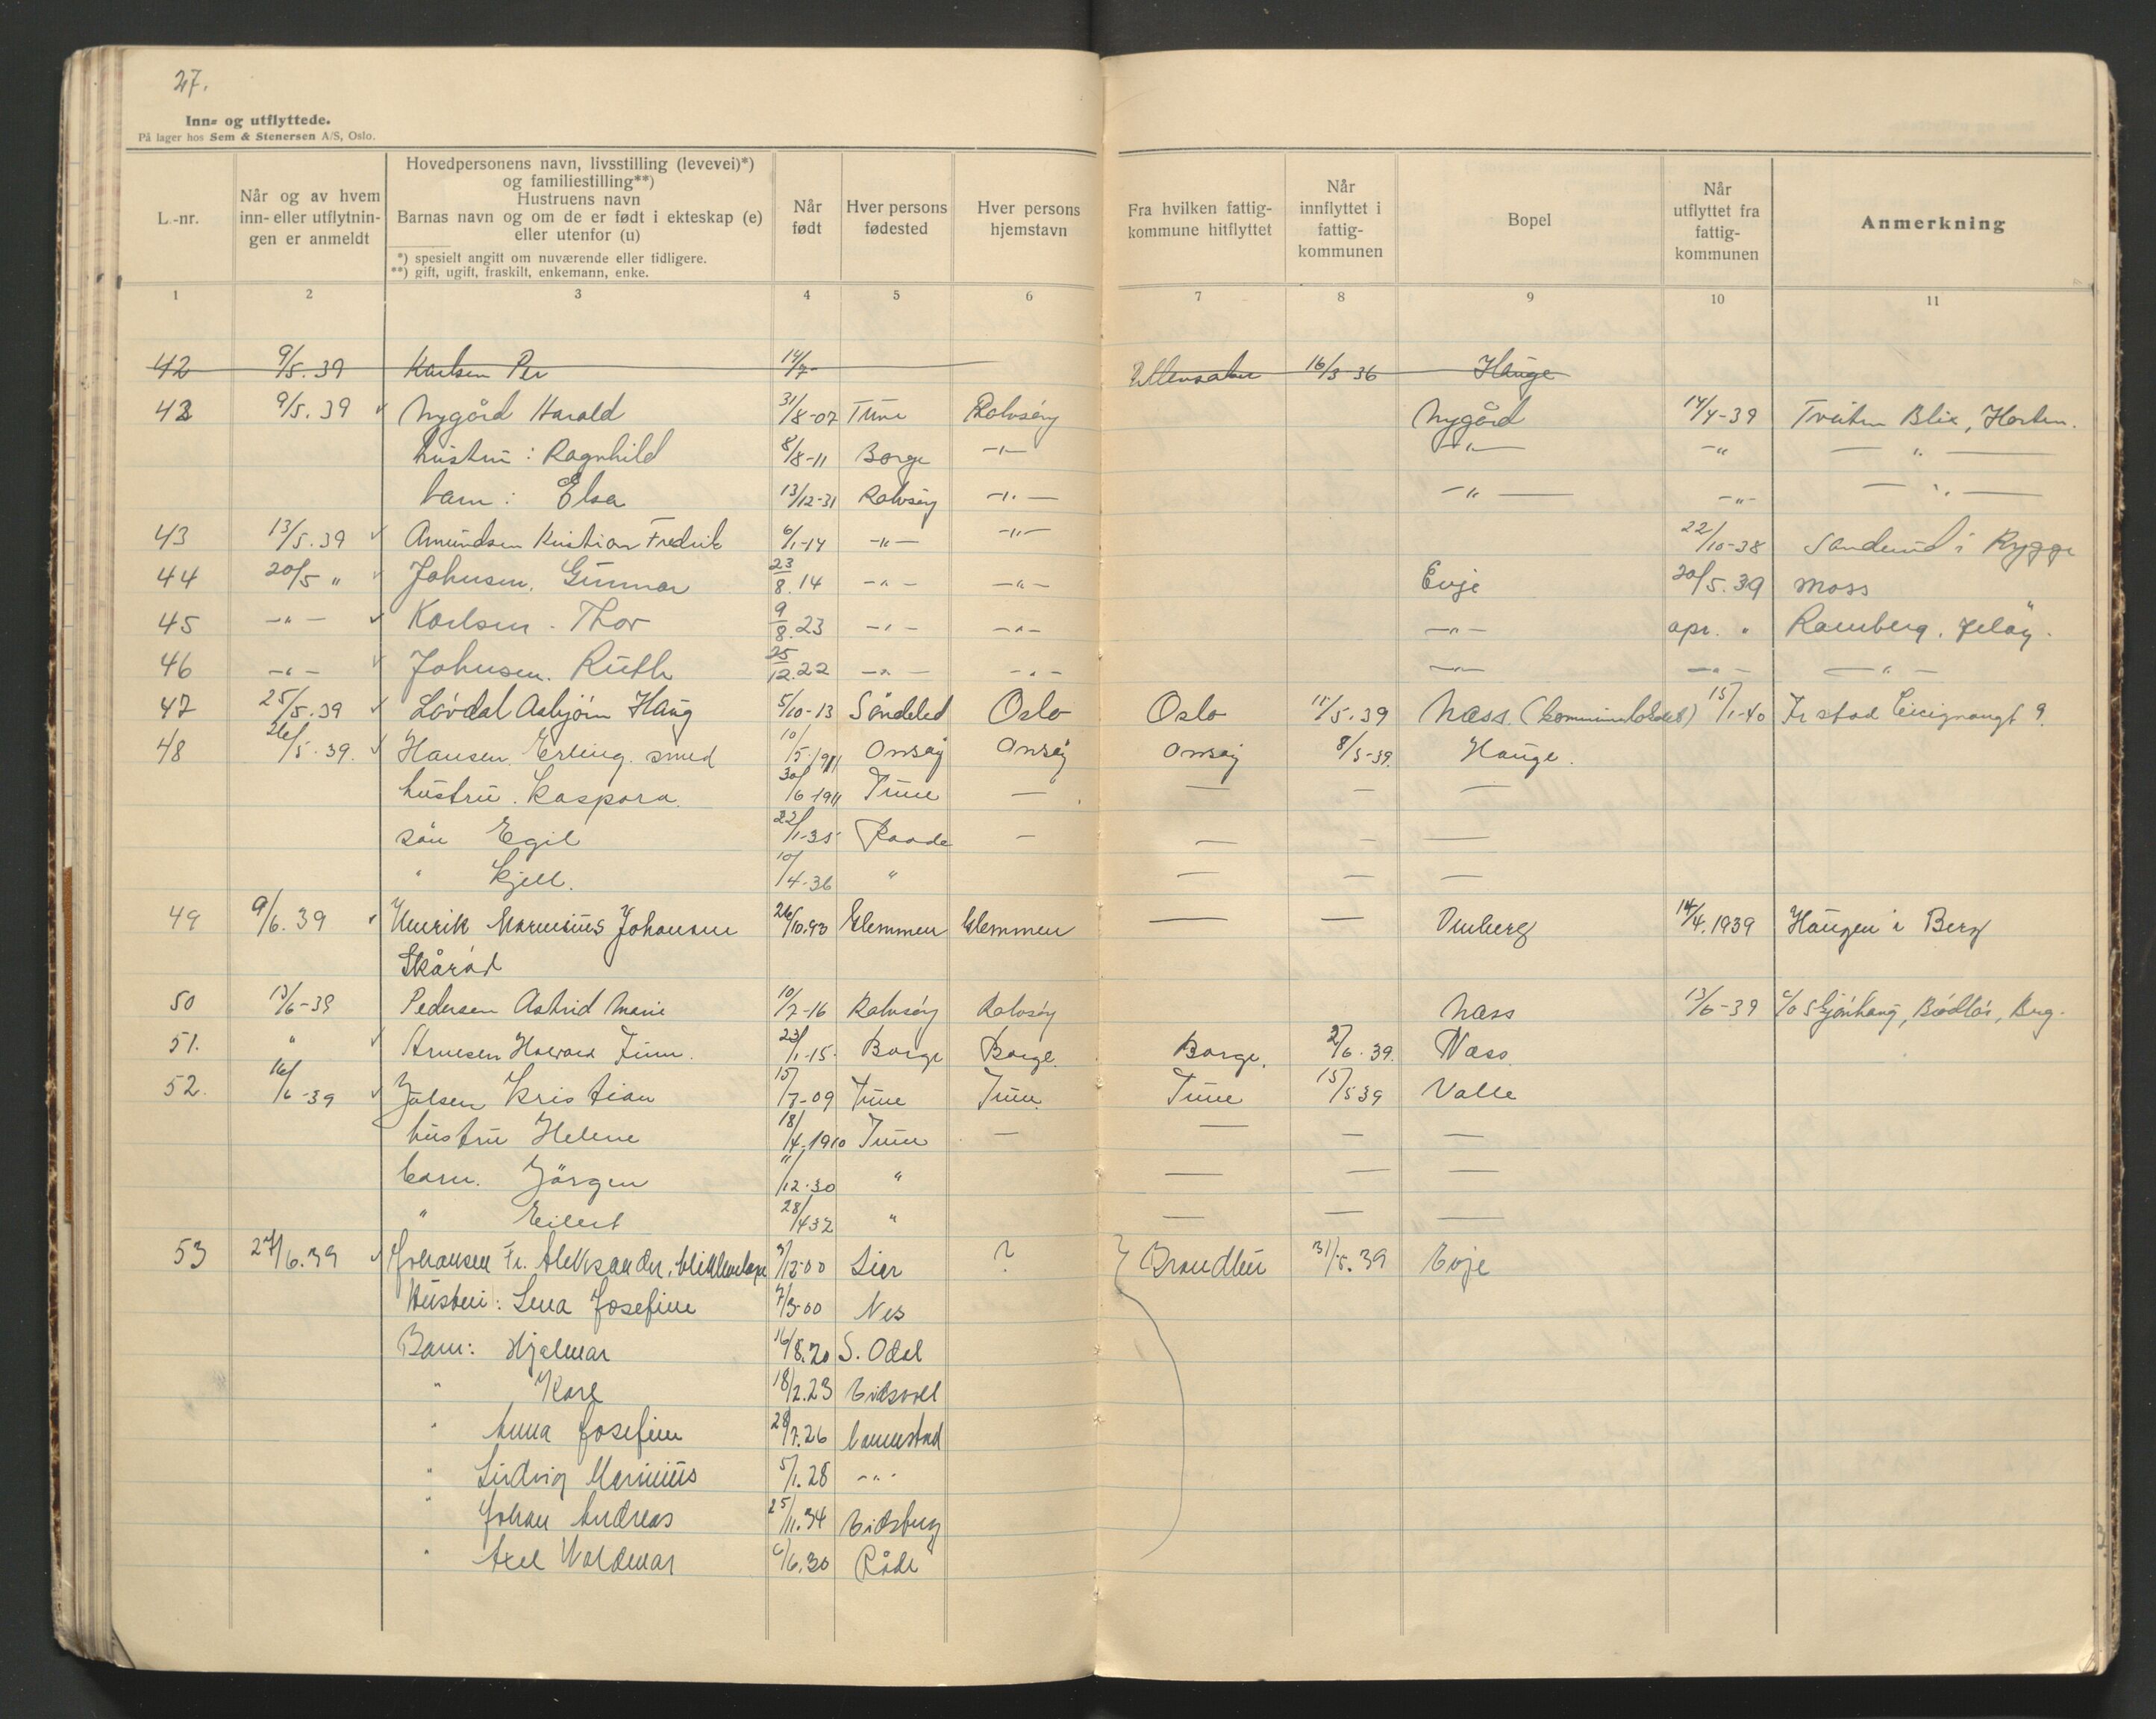 27.
Inn- og utflyttede.
På lager hos Sem & Stenersen A/S, Oslo.
L.-nr.
Når og av hvem inn- eller utflytnin-gen er anmeldt
Hovedpersonens navn, livsstilling (levevei)*) og familiestilling**)
Hustruens navn
Barnas navn og om de er født i ekteskap (e) eller utenfor (u)
*) spesielt angitt om nuværende eller tidligere.
**) gift, ugift, fraskilt, enkemann, enke.
Når født
Hver persons fødested
Hver persons hjemstavn
Fra hvilken fattig-kommune hitflyttet
Når innflyttet i fattig-kommunen
Bopel
Når utflyttet fra fattig-kommunen
Anmerkning
1 2 3 4 5 6 7 8 9 10 11
42 9/5.39 Karlsen Per 14/7- 16/3 36 Hauge
42 9/5.39 Nygård Harald 31/8-07 Tune Rolvsøy Nygård 14/4-39 Tveiten Blix, Horten.
hustru: Ragnhild 8/8-11 Borge -"- -"- -" -"-
barn: Elsa 13/12-31 Rolvsøy -"- -"- -"- -"-
43 13/5.39 Amundsen Kristian Fredrik 6/1-14 -"- -"- 22/10-38 i Rygge
44 20/5 " Johnsen, Gunnar 23/8.14 -"- -"- Evje 20/5.39 Moss
45 -"- Karlsen. Thor 9/8.23 -"- -"- -"- apr. " Ramberg, Jeløy.
46 -"- Johnsen. Ruth 25/12.22 -"- -"- -"- -"- -"-
47 25/5.39 Løvdal Asbjørn Haug 5/10-13 Søndeled Oslo Oslo 11/5.39 Næss. 15/1-40 Fr.stad
48 26/5.39. Hansen, Erling. smed 10/5.1911 Onsøy Onsøy Onsøy 8/5-39. Hauge.
hustru. Kaspara. 30/6-1911 Tune — — — —
søn Egil 22/1-35 Raade — — — —
" Kjell. 10/4-36 " — — —
49 9/6.39 Henrik Marensius Johansen 26/10.93 Glemmen Glemmen — — Omberg 14/4.1939 Haugen i Berg
Skåråd
50 13/6-39 Pedersen Astrid Marie 10/7-16 Rolvsøy Rolvsøy Næss 13/6-39 c/o
51. " Arnesen Halvard Finn. 23/1-15. Borge Borge. Borge. 2/6.39. Næss
52. 16/6-39 Julsen Kristian 15/7-09 Tune Tune. Tune 15/5 39 Valle
hustru Helene 18/4.1910 Tune — — — —
barn. Jörgen 11/12.30 " — — —
" Eilert 28/4 32 " — — —
53 27/6.39 Johansen Fr. Aleksander, 3/12-00 Lier ? } Brandbu 31/5.39 Evje
Hustru: Lena Josefine 7/3-00 Nes
Barn: Hjalmar 16/8.20 S. Odal
" Karl 18/2.23 Eidsvoll
" Anna Josefine 28/7.26
" Ludvig Marinius 5/1.28 -"-
" Johan Andreas 25/11.34 Eidsberg
" Axel Waldemar 6/6.30 Råde